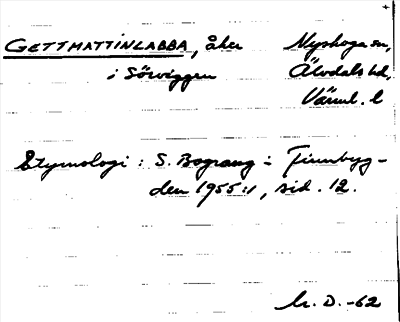 GETTMATTINLABBA, åker Nyskoga sn,
i Sörviggen Älvdals hd,
Värml. l
Etymologi: S. Bograng i Finnbyg-
den 1955:1, sid. 12.
D. -62